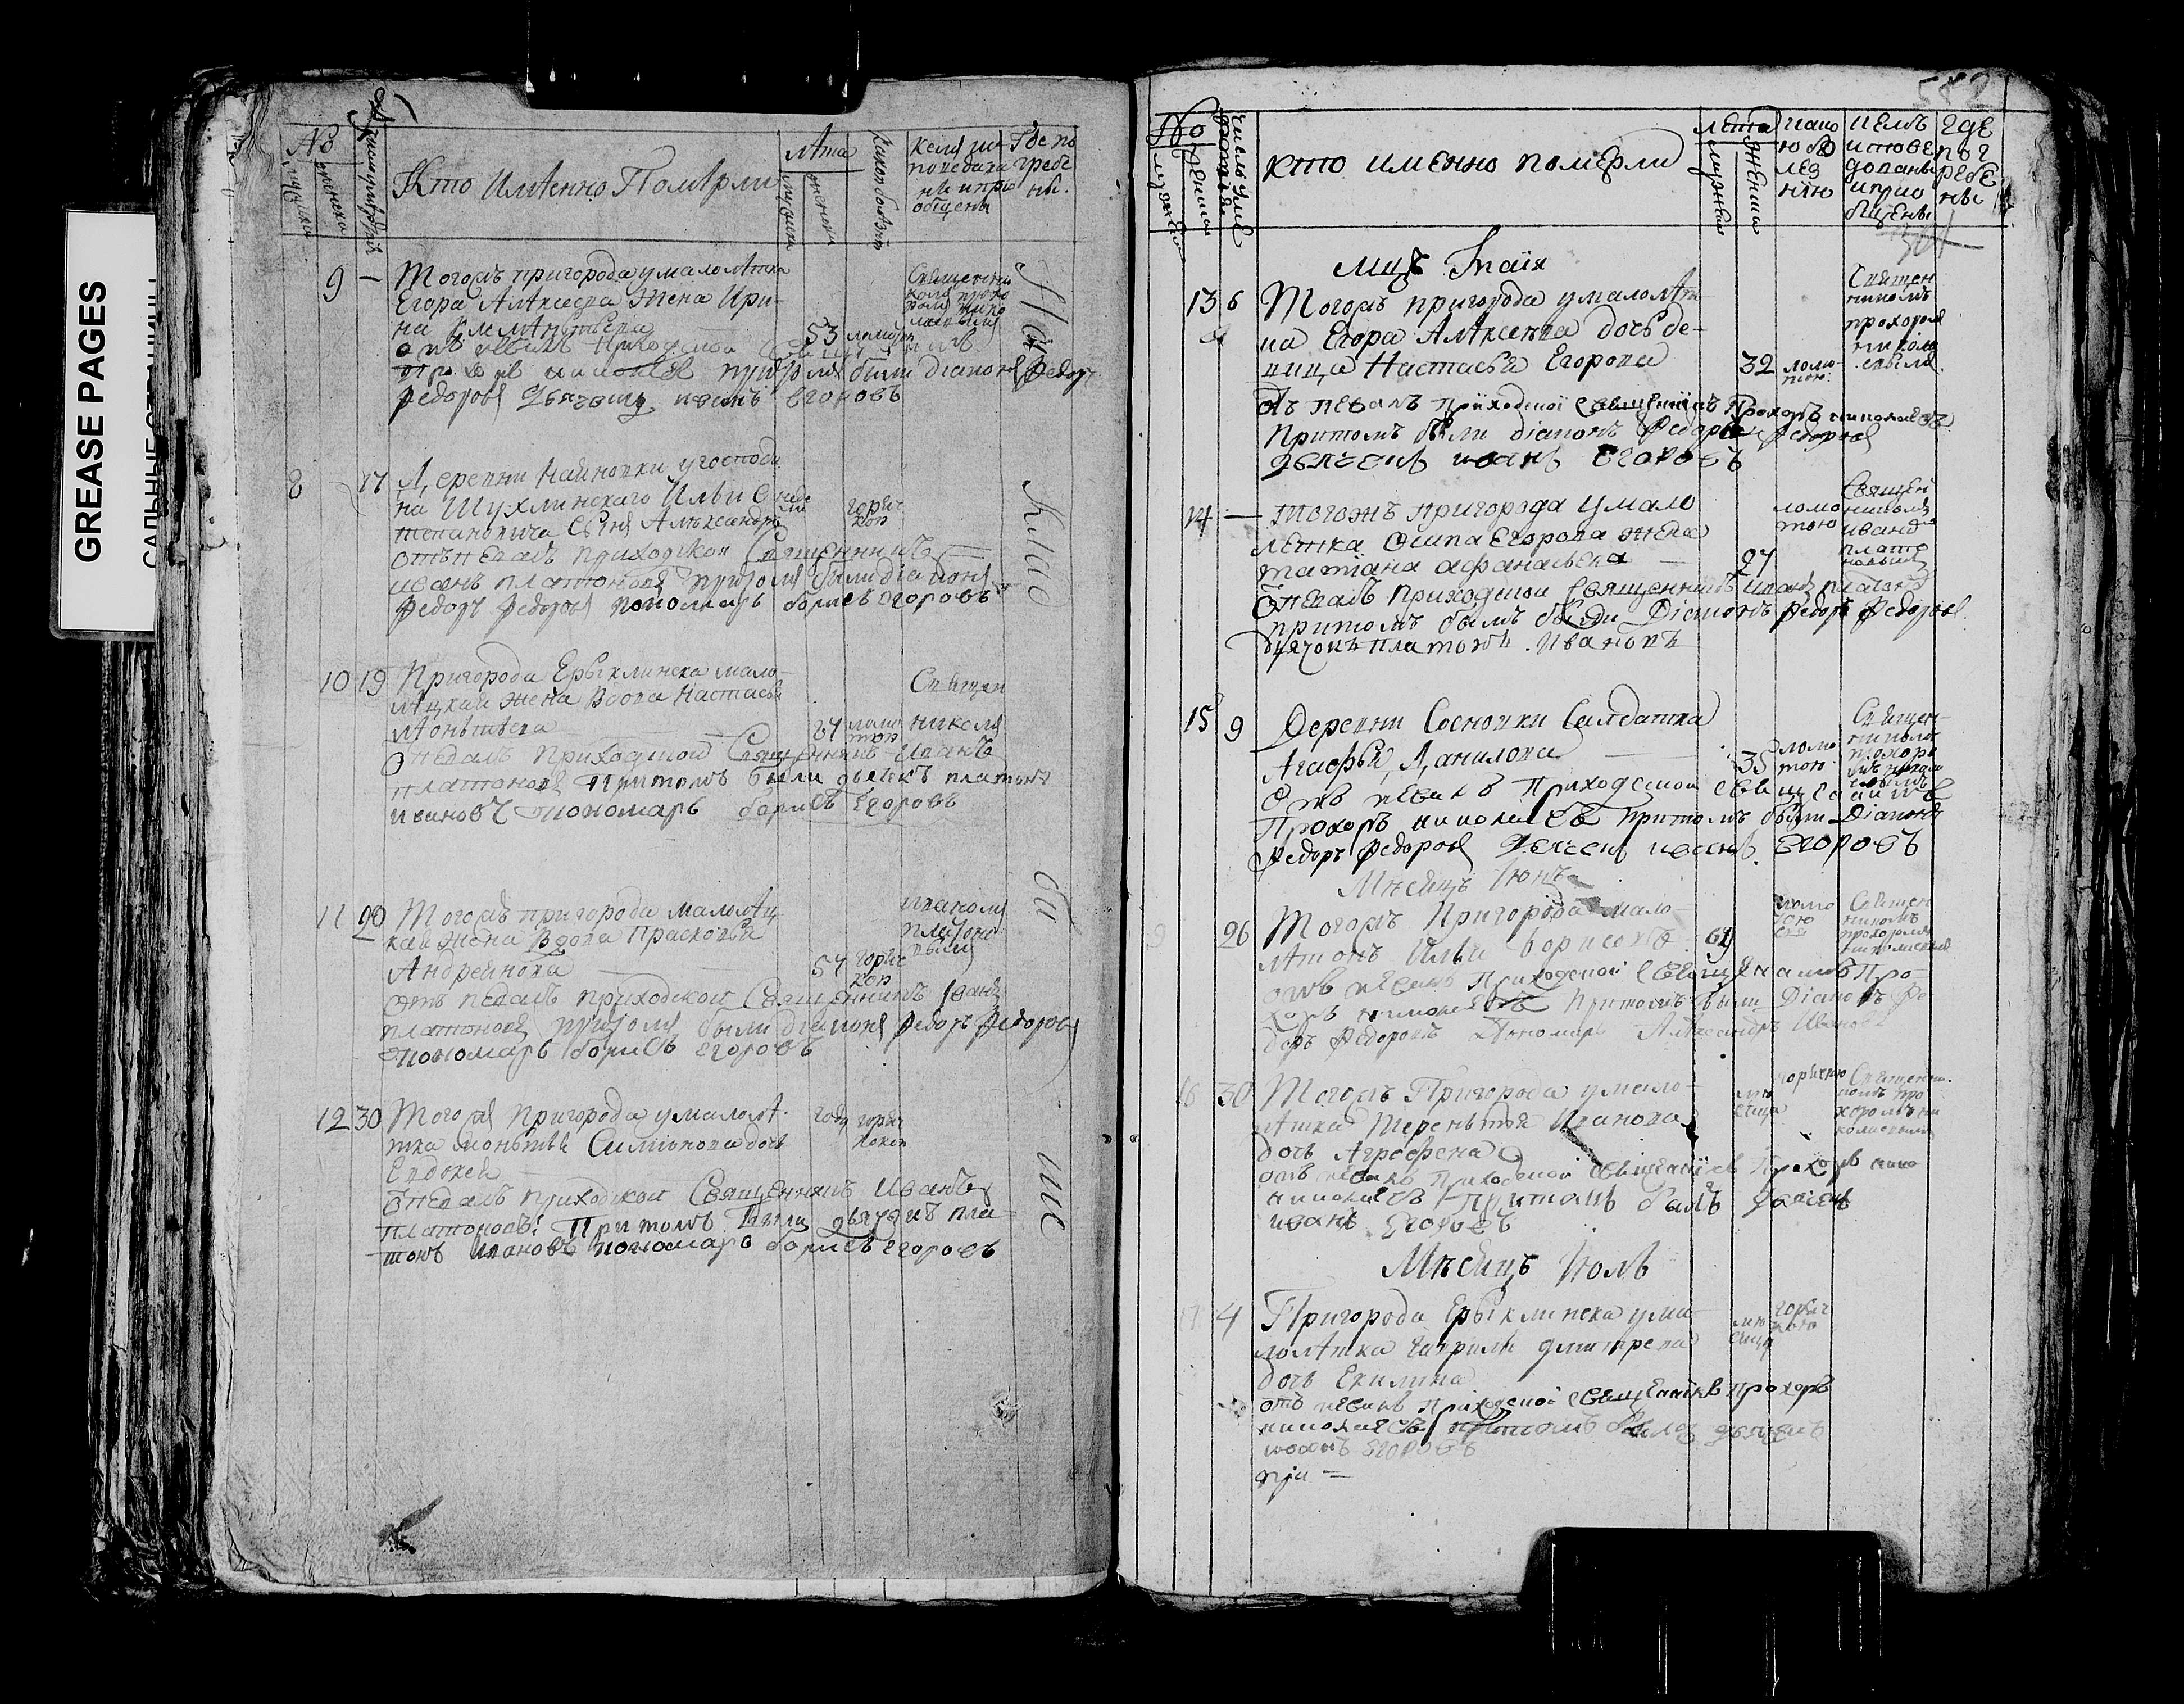 GREASE PAGES
№
Кто Имѣенно Помѣрли
лѣта
9 — Тогожъ пригорода умалолѣтка
Егора Алѣксѣева Жена Ири-
на Клемѣнтьева
53
приходской
притомъ были diаконъ Федоръ
Федоровъ дьячокъ иванъ Егоровъ
8 17 Деревни Найновки у господи
на Шухлинскаго Ильи
Степановича Сынъ Алѣксандръ
горяч
кой
отъпевалъ приходской Священникъ
иванъ платоновъ притомъ были diаконъ
Федоръ Федоровъ пономарь борисъ Егоровъ
10 19 Пригорода Ерыклинска мало-
лѣцкая Жена Вдова Настасья
лѣоньтьева
Священ
никомъ
Отпевалъ Приходской Священникъ Иванъ
платоновъ Притомъ были дьячекъ платонъ
ивановъ пономарь борисъ Егоровъ
11 20 Тогожъ пригорода малолѣц-
кая Жена Вдова Прасковья
Андрейнова
57 горяч
кой
иваномъ
платоно
вымъ
отъ певалъ приходской Священникъ Иванъ
платоновъ притомъ были diаконъ Федоръ Федоровъ
пономарь борисъ Егоровъ
12 30 Тогожъ Пригорода умалолѣ-
тка лѣоньтья Симiонова дочь
Евдокея
году горяч
кою
Отпевалъ приходской Священникъ Иванъ
платоновъ: Притомъ были дьячокъ пла-
тонъ Ивановъ пономарь борисъ Егоровъ
На
Клад
би
ще
582
№
кто именно померли
лѣта
мужеска
женска
какою бо
лез
нiю
кемъ
исповѣ
дованы
и прио
бщены
где
пог
ребе
ны
мцъ маiя
13 6 Тогожъ пригорода умалолѣт
ка Егора Алѣксѣева дочь де-
вица Настасья Егорова
32 ломо-
тою
Священ
никомъ
прохоромъ
никола
евымъ
отъ певалъ приходской священникъ Прохоръ николаевъ
Притомъ были diаконъ Федоръ Федоровъ
дьячокъ иванъ Егоровъ
14 — Тогожъ пригорода умало
летка Осипа Егорова жена
татiана афанасьева
27
ломо
тою
Священ
никомъ
иваномъ
плато
новымъ
Отпевалъ приходской Священникъ иванъ платоновъ
притомъ были Diаконъ Федоръ Федоровъ
дьячокъ платонъ Ивановъ
15 9 Деревни Сосновки Салдатка
Агафья Данилова
35 ломо
тою
Священ-
никомъ
прохоро
мъ никола
евымъ
отъ певалъ Приходской священникъ
Прохоръ николаевъ Притомъ были Diаконъ
Федоръ Федоровъ дьячокъ иванъ Егоровъ
Мѣсѣцъ Iюнь
26 Тогожъ Пригорода мало-
лѣтокъ Илья борисовъ
Священ
никомъ
прохоромъ
николаевымъ
отъ певалъ Приходской священникъ Про-
хоръ николаевъ Притомъ были Diаконъ Фе
доръ Федоровъ Пономарь Алѣксандръ Ивановъ
16 30 Тогожъ Пригорода умало-
лѣтка Тереньтья Иванова
дочь Агрофена
горячкою
Священни
комъ про
хоромъ ни
колаевымъ
отъ певалъ Приходской священникъ Прохоръ нико
николаевъ Притомъ былъ дьячокъ
иванъ Егоровъ
Мѣсѣцъ Июль
17 4 Пригорода Ерыклинска ума-
лолѣтка гаврилы дмитрева
дочь Екилина
горяч
кою
отъ певалъ Приходской священникъ Прохоръ
николаевъ притомъ былъ дьячокъ
иванъ Егоровъ
при —